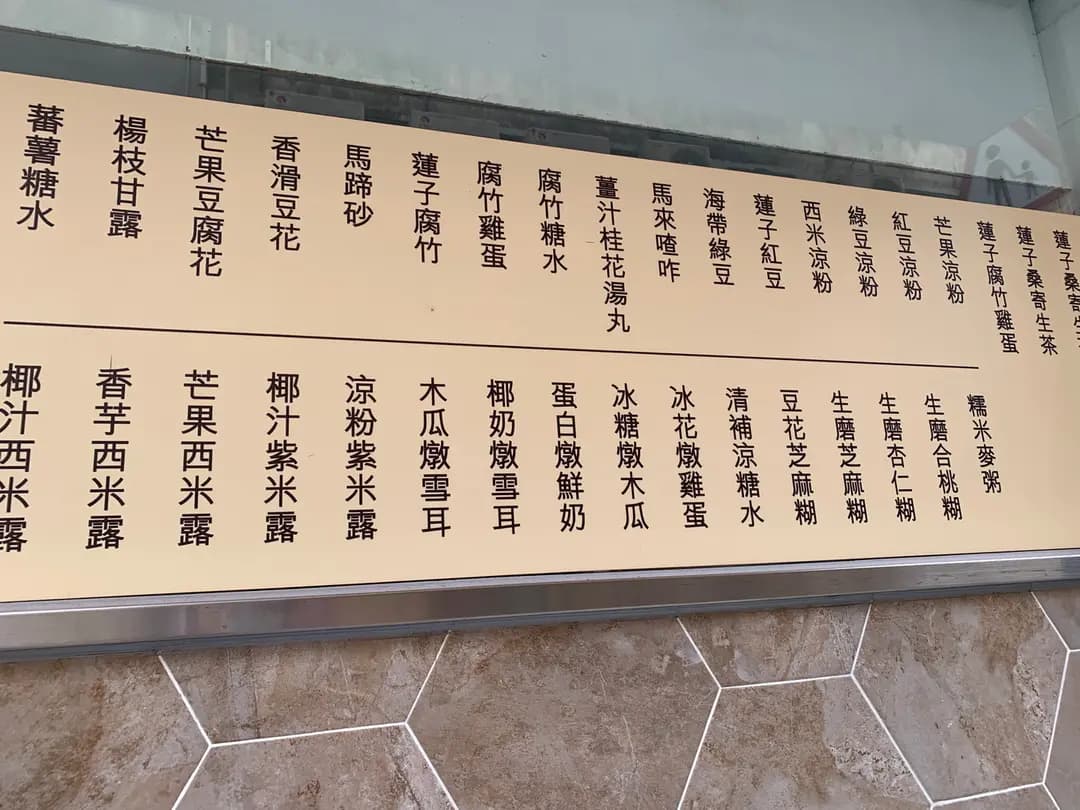 蓮子桑寄生
蓮子桑寄生茶
蓮子腐竹雞蛋
芒果涼粉
紅豆涼粉
綠豆涼粉
西米涼粉
蓮子紅豆
海帶綠豆
馬來喳咋
薑汁桂花湯丸
腐竹糖水
腐竹雞蛋
蓮子腐竹
馬蹄砂
香滑豆花
芒果豆腐花
楊枝甘露
蕃薯糖水
糯米麥粥
生磨合桃糊
生磨杏仁糊
生磨芝麻糊
豆花芝麻糊
清補涼糖水
冰花燉雞蛋
冰糖燉木瓜
蛋白燉鮮奶
椰奶燉雪耳
木瓜燉雪耳
涼粉紫米露
椰汁紫米露
芒果西米露
香芋西米露
椰汁西米露